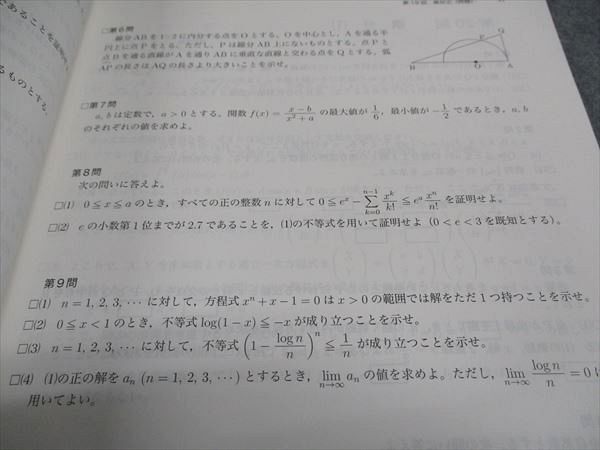 第6問
線分ABを1:2に内分する点をOとする。Oを中心とし、Aを通る半
円上に点Pをとる。ただし、Pは線分AB上にないものとする。点Pと
点Bを通る直線がAを通りABに垂直な直線と交わる点をQとする。弧
APの長さはAQの長さより大きいことを示せ。
P
Q
B
O
A
□第7問
a, bは定数で、a > 0とする。関数 f(x) = (x−b)/(x²+a) の最大値が 1/6, 最小値が −1/2 であるとき, a, b
のそれぞれの値を求めよ。
第8問
次の問いに答えよ。
□(1) 0 ≦ x ≦ a のとき, すべての正の整数 n に対して 0 ≦ e^x − Σ_{k=0}^{n−1} x^k/k! ≦ e^a x^n/n! を証明せよ。
□(2) e の小数第1位までが 2.7 であることを, (1)の不等式を用いて証明せよ (0 < e < 3 を既知とする)。
第9問
□(1) n = 1, 2, 3, ⋯ に対して, 方程式 x^n + x − 1 = 0 は x > 0 の範囲では解をただ1つ持つことを示せ。
□(2) 0 ≦ x < 1 のとき, 不等式 log(1 − x) ≦ −x が成り立つことを示せ。
□(3) n = 1, 2, 3, ⋯ に対して, 不等式 (1 − log n/n)^n ≦ 1/n が成り立つことを示せ。
□(4) (1)の正の解を a_n (n = 1, 2, 3, ⋯) とするとき, lim_{n→∞} a_n の値を求めよ。ただし, lim_{n→∞} log n/n = 0
用いてよい。